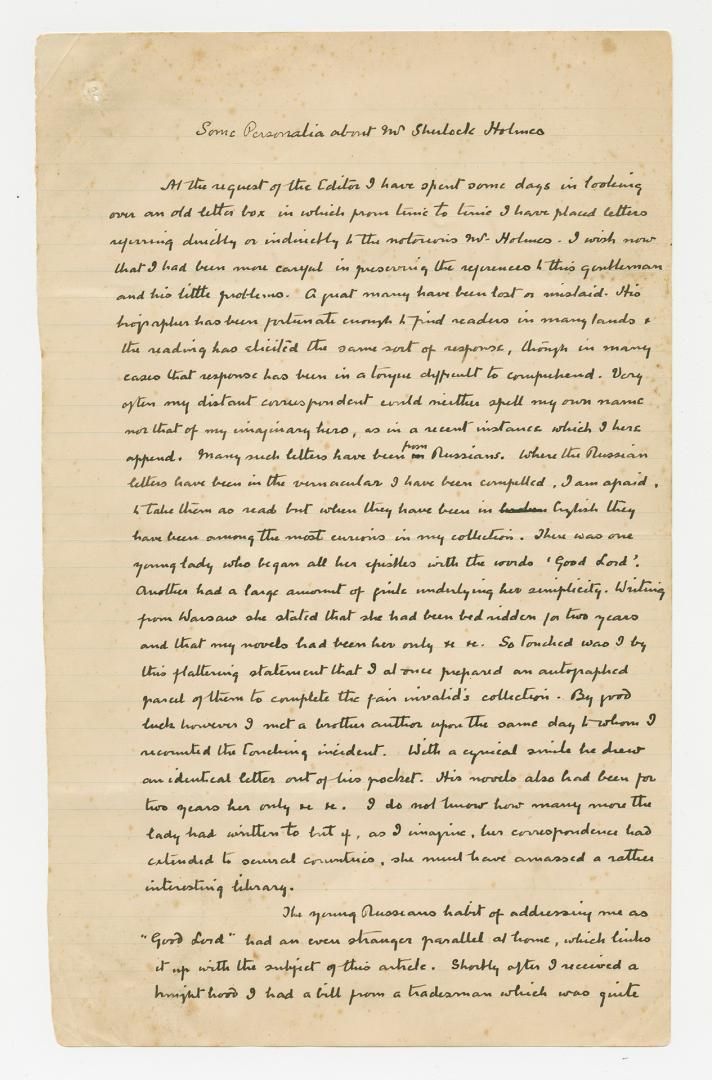 Some Personalia about Mr Sherlock Holmes
At the request of the Editor I have spent some days in looking
over an old letter box in which from time to time I have placed letters
referring directly or indirectly to the notorious Mr. Holmes. I wish now
that I had been more careful in preserving the references to this gentleman
and his little problems. A great many have been lost or mislaid. His
biographer has been fortunate enough to find readers in many lands &
the reading has elicited the same sort of response, though in many
cases that response has been in a tongue difficult to comprehend. Very
often my distant correspondent could neither spell my own name
nor that of my imaginary hero, as in a recent instance which I here
append. Many such letters have been from Russians. Where the Russian
letters have been in the vernacular I have been compelled, I am afraid,
to take them as read but when they have been in English they
have been among the most curious in my collection. There was one
young lady who began all her epistles with the words 'Good Lord'.
Another had a large amount of guile underlying her simplicity. Writing
from Warsaw she stated that she had been bedridden for two years
and that my novels had been her only &c &c. So touched was I by
this flattering statement that I at once prepared an autographed
parcel of them to complete the fair invalid's collection. By good
luck however I met a brother author upon the same day to whom I
recounted the touching incident. With a cynical smile he drew
an identical letter out of his pocket. His novels also had been for
two years her only &c &c. I do not know how many more the
lady had written to but if, as I imagine, her correspondence had
extended to several countries, she must have amassed a rather
interesting library.
The young Russians habit of addressing me as
"Good Lord" had an even stranger parallel at home, which links
it up with the subject of this article. Shortly after I received a
knighthood I had a bill from a tradesman which was quite